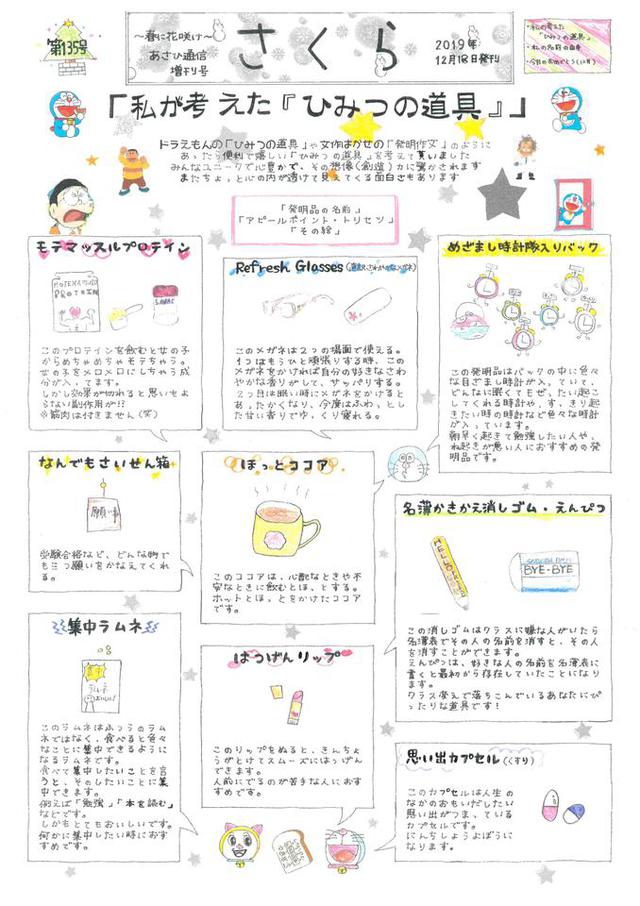 第135号
～春に花咲け～
あさひ通信
増刊号
さくら
2019年
12月18日発刊
・私の考えた
「ひみつの道具」
・私の名前の由来
「私が考えた『ひみつの道具』」
ドラえもんの「ひみつの道具」や
「発明作文」のように
あったら便利で嬉しい「ひみつの道具」を考えて貰いました
みんなユニークで心豊かで、その想像(創造)力に驚かされます
またちょっと心の内が透けて見えてくる面白さもあります
「発明品の名前」
「アピールポイント・トリセツ」
「その絵」
モテマッスルプロテイン
このプロテインを飲むと女の子
からめちゃめちゃモテちゃう。
女の子をメロメロにしちゃう成
分が入ってます。
しかし効果が切れると思いもよ
らない副作用が!?
※筋肉は付きません(笑)
Refresh Glasses
このメガネは2つの場面で使える。
1つはもうひと頑張りする時、この
メガネをかければ自分の好きなさわ
やかな香りがして、サッパリする。
2つ目は眠い時にメガネをかけると
あったかくなり、今度はふわっとし
た甘い香りでゆっくり寝れる。
めざまし時計隊入りバック
この発明品はバックの中に色々
な目ざまし時計が入っていて、
どんなに眠くてもぜったい起こ
してくれる時計や、すっきり起
きたい時の時計など色々な時計
が入っています。
朝早く起きて勉強したい人や、
ね起きが悪い人におすすめの発
明品です。
なんでもさいせん箱
願い事
受験合格など、どんな時で
も三つ願いをかなえてくれ
る。
ほっとココア
このココアは、心配なときや不
安なときに飲むとほっとする。
ホットとほっとをかけたココア
です。
名簿かきかえ消しゴム・えんぴつ
HELLO
BYE-BYE
この消しゴムはクラスに嫌な人がいたら
名簿表でその人の名前を消すと、その人
を消すことができます。
えんぴつは、好きな人の名前を名簿表に
書くと最初から存在していたことになり
ます。
クラス替えで落ちこんでいるあなたにぴ
ったりな道具です！
集中ラムネ
集中
ラムネ
このラムネはふつうのラム
ネではなく、食べると色々
なことに集中できるように
なるラムネです。
食べて集中したいことを言
うと、そのしたいことに集
中できます。
例えば「勉強」「本を読む」
などです。
しかもとてもおいしいです。
何かに集中したい時におす
すめです。
はつげんリップ
このリップをぬると、きんちょ
うがとけてスムーズにはつげん
できます。
人前にでるのが苦手な人におす
すめです。
思い出カプセル(くすり)
このカプセルは人生の
なかのおもいだしたい
思い出がつまっている
カプセルです。
にんちしょうよぼうに
なります。